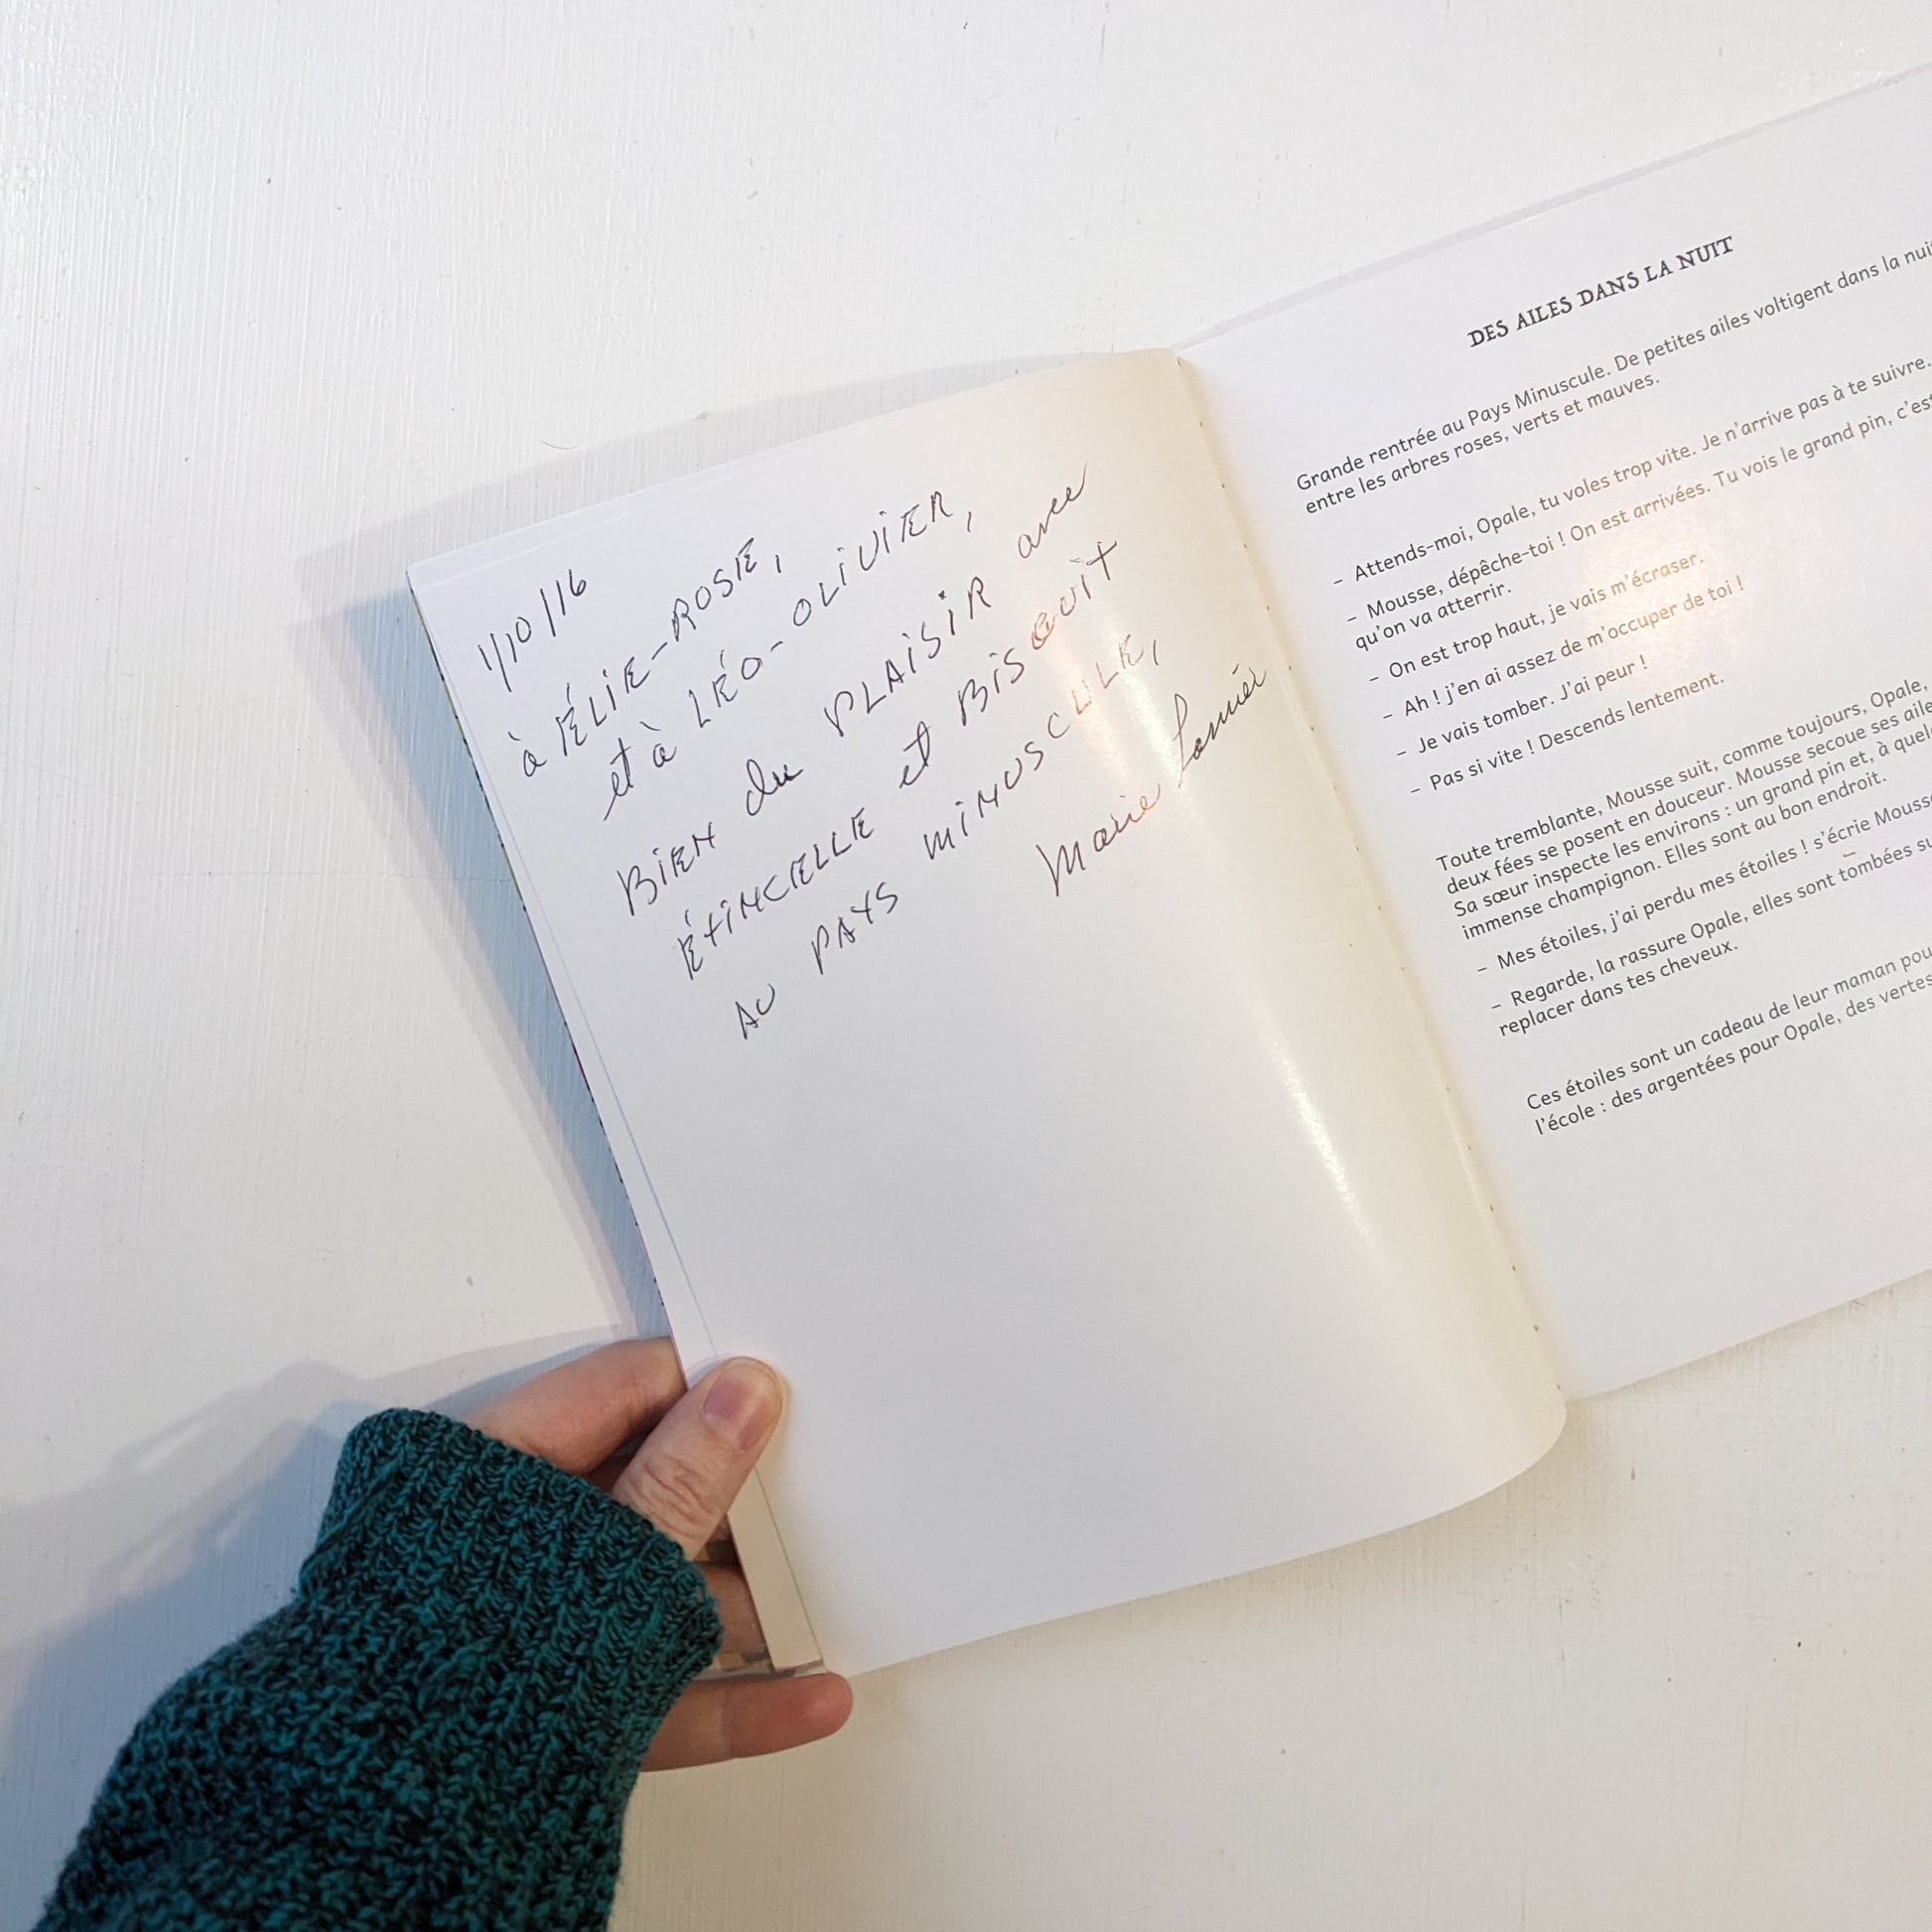 1/10/16
à ÉLIE-ROSE,
et à LÉO-OLIVIER,
BIEN du PLAISIR avec
ÉTINCELLE et BISCUIT
AU PAYS MINUSCULE,
Marie
DES AILES DANS LA NUIT
Grande rentrée au Pays Minuscule. De petites ailes voltigent dans la nuit
entre les arbres roses, verts et mauves.
– Attends-moi, Opale, tu voles trop vite. Je n'arrive pas à te suivre.
– Mousse, dépêche-toi ! On est arrivées. Tu vois le grand pin, c'est
qu'on va atterrir.
– On est trop haut, je vais m'écraser.
– Ah ! j'en ai assez de m'occuper de toi !
– Je vais tomber. J'ai peur !
– Pas si vite ! Descends lentement.
Toute tremblante, Mousse suit, comme toujours, Opale,
deux fées se posent en douceur. Mousse secoue ses
Sa sœur inspecte les environs : un grand pin et, à
immense champignon. Elles sont au bon endroit.
– Mes étoiles, j'ai perdu mes étoiles ! s'écrie
– Regarde, la rassure Opale, elles sont tombées
replacer dans tes cheveux.
Ces étoiles sont un cadeau de leur maman
l'école : des argentées pour Opale, des vertes